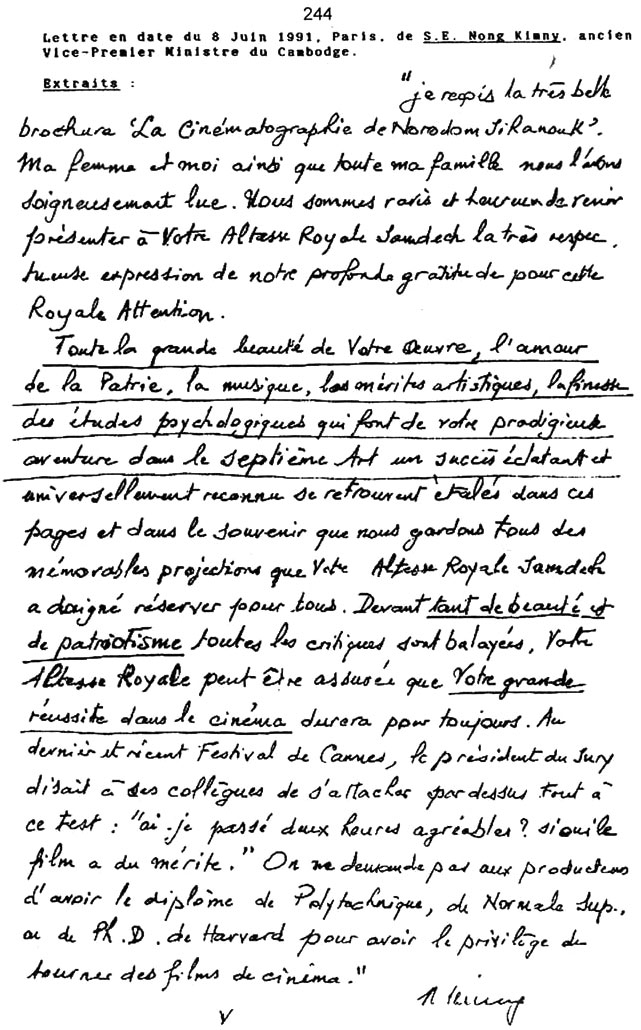 244
Lettre en date du 8 Juin 1991, Paris, de S.E. Nong Kimny, ancien
Vice-Premier Ministre du Cambodge.
Extraits :
"je reçois la très belle
brochure 'La Cinématographie de Norodom Sihanouk'.
Ma femme et moi ainsi que toute ma famille nous l'avons
soigneusement lue. Nous sommes ravis et heureux de venir
présenter à Votre Altesse Royale Samdech la très respec.
tueuse expression de notre profonde gratitude pour cette
Royale Attention.
Toute la grande beauté de Votre Œuvre, l'amour
de la Patrie, la musique, les mérites artistiques, la finesse
des études psychologiques qui font de votre prodigieuse
aventure dans le Septième Art un succès éclatant et
universellement reconnu se retrouvent étalés dans ces
pages et dans le souvenir que nous gardons tous des
mémorables projections que Votre Altesse Royale Samdech
a daigné réserver pour tous. Devant tant de beauté et
de patriotisme toutes les critiques sont balayées, Votre
Altesse Royale peut être assurée que Votre grande
réussite dans le cinéma durera pour toujours. Au
dernier et récent Festival de Cannes, le président du Jury
disait à ses collègues de s'attacher par dessus tout à
ce test : "ai-je passé deux heures agréables ? si oui le
film a du mérite." On ne demande pas aux producteurs
d'avoir le diplôme de Polytechnique, de Normale Sup.,
ou de Ph.D. de Harvard pour avoir le privilège de
tourner des films de cinéma."